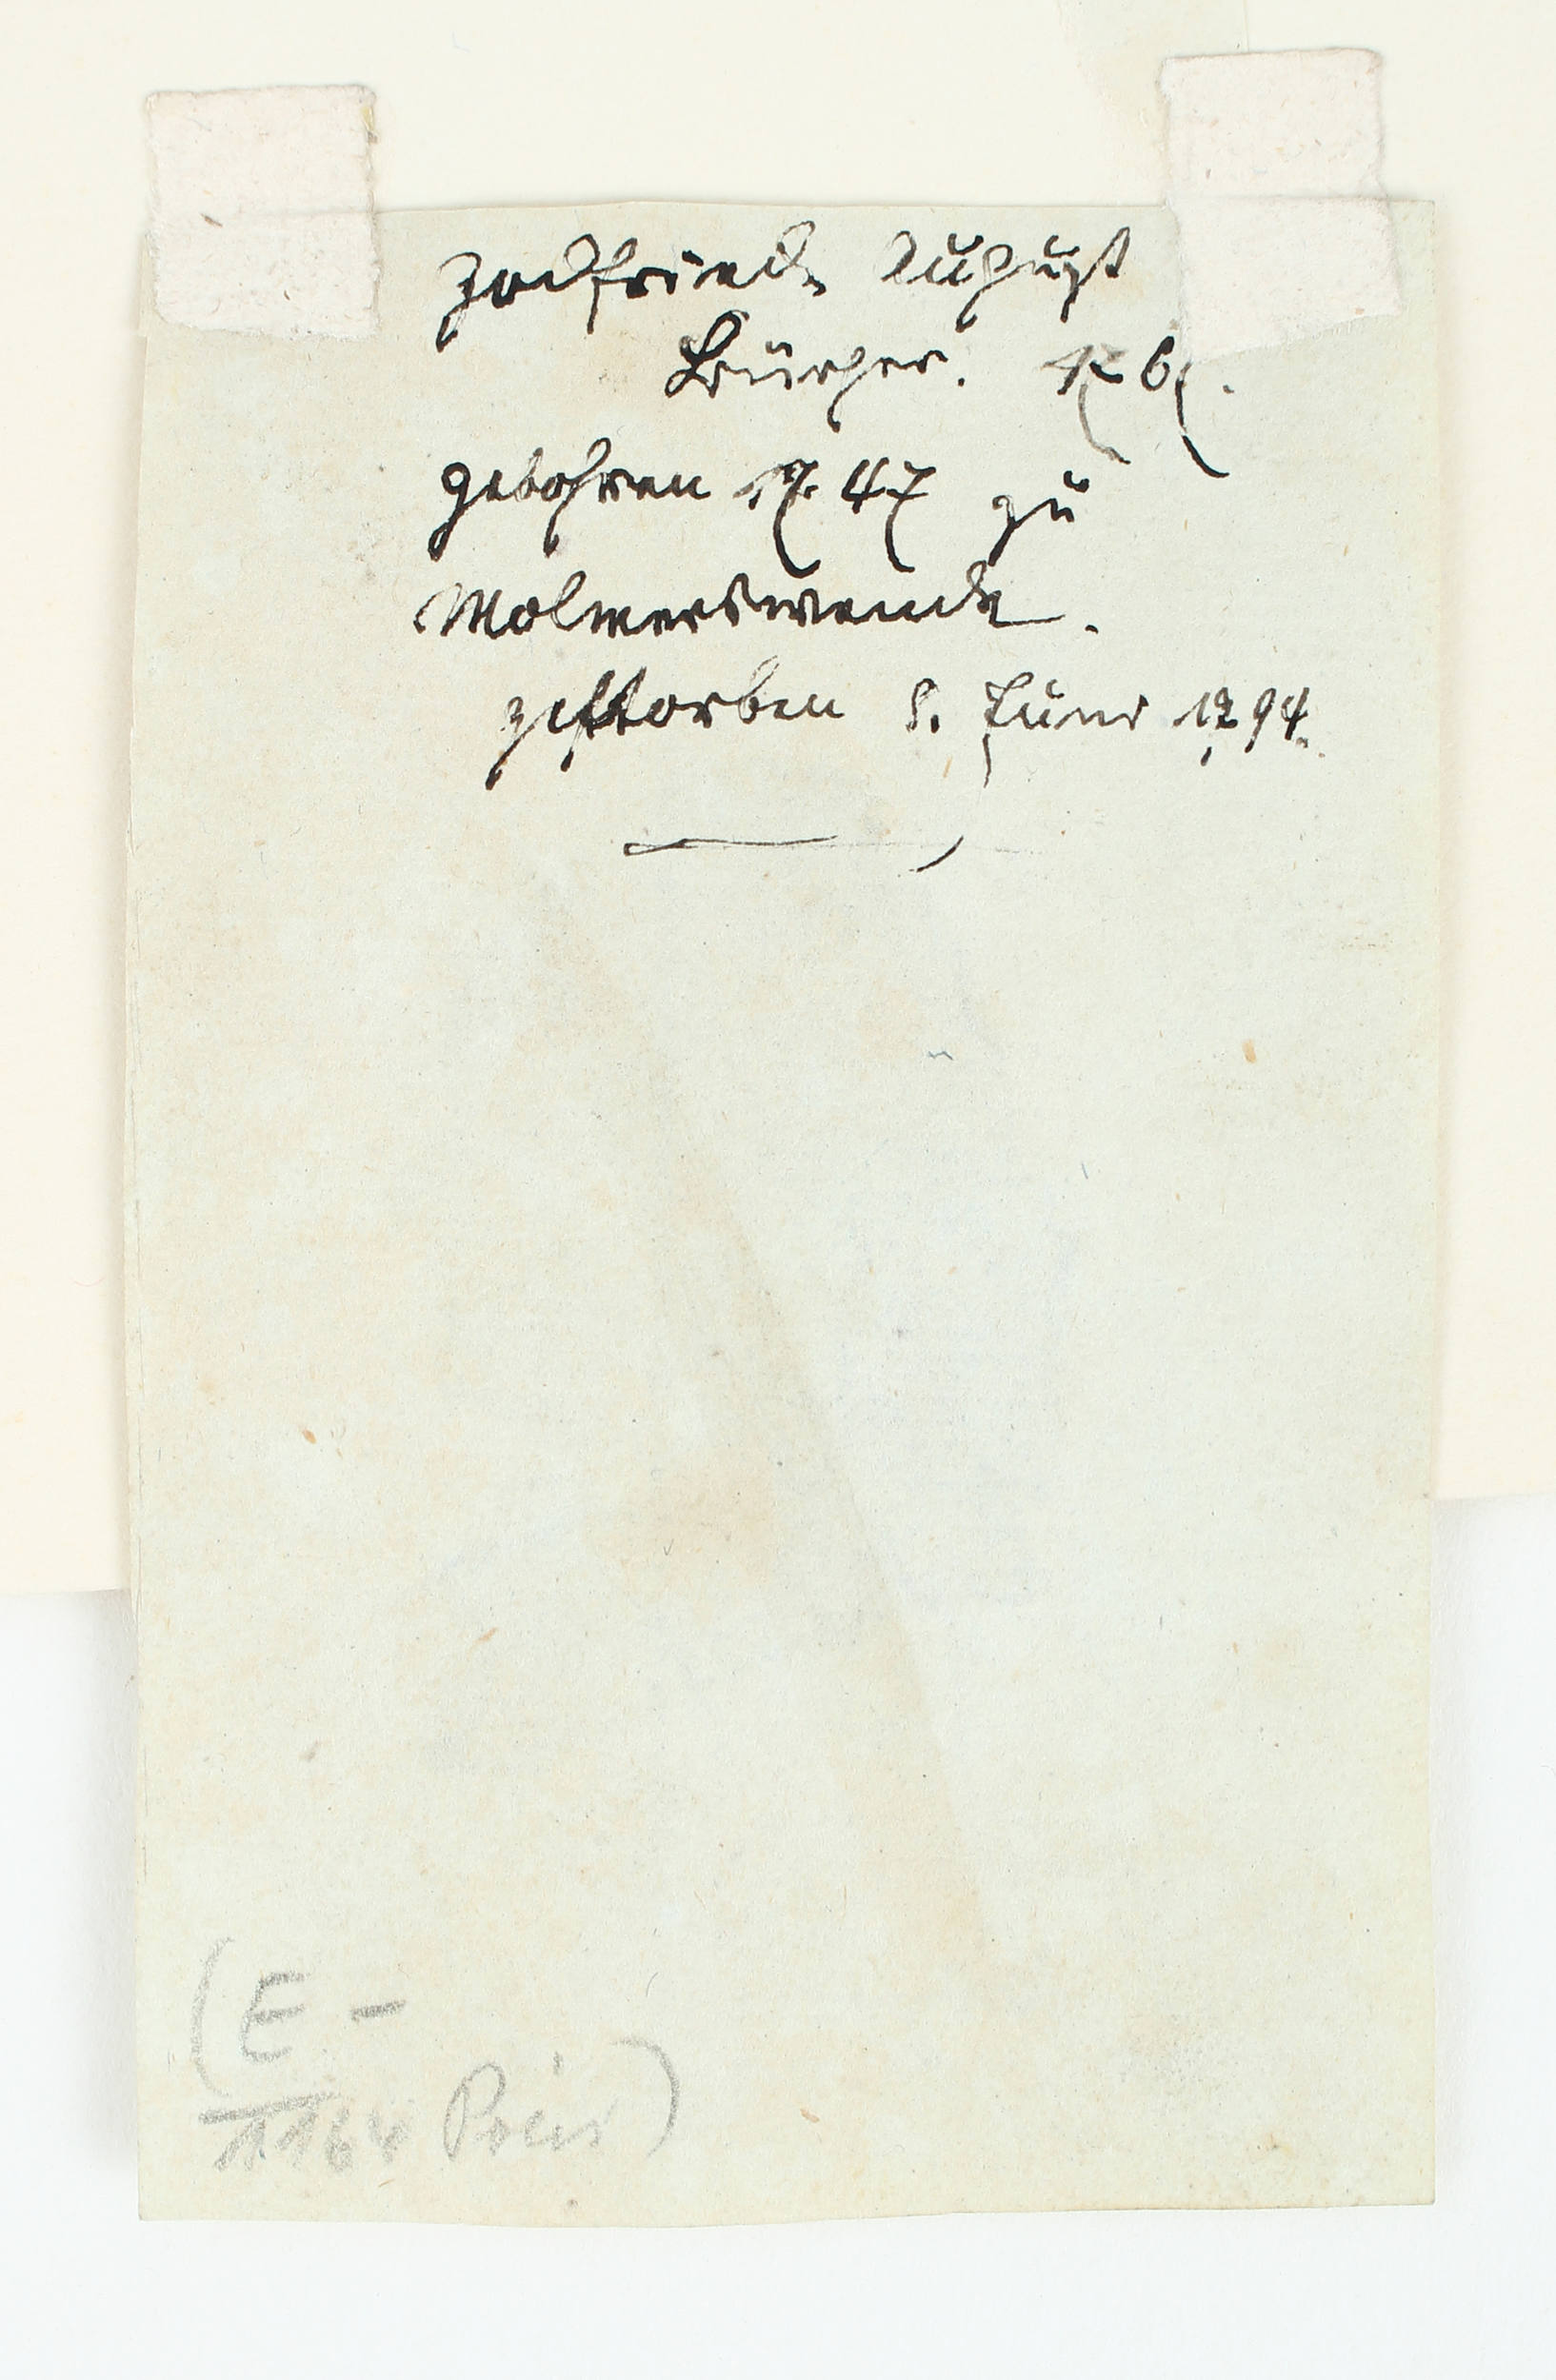 Godfried August
Bürger.
gebohren 1747 zu
Molmerswende.
gestorben 8. Juni 1794.
(E –
1164 Preis)